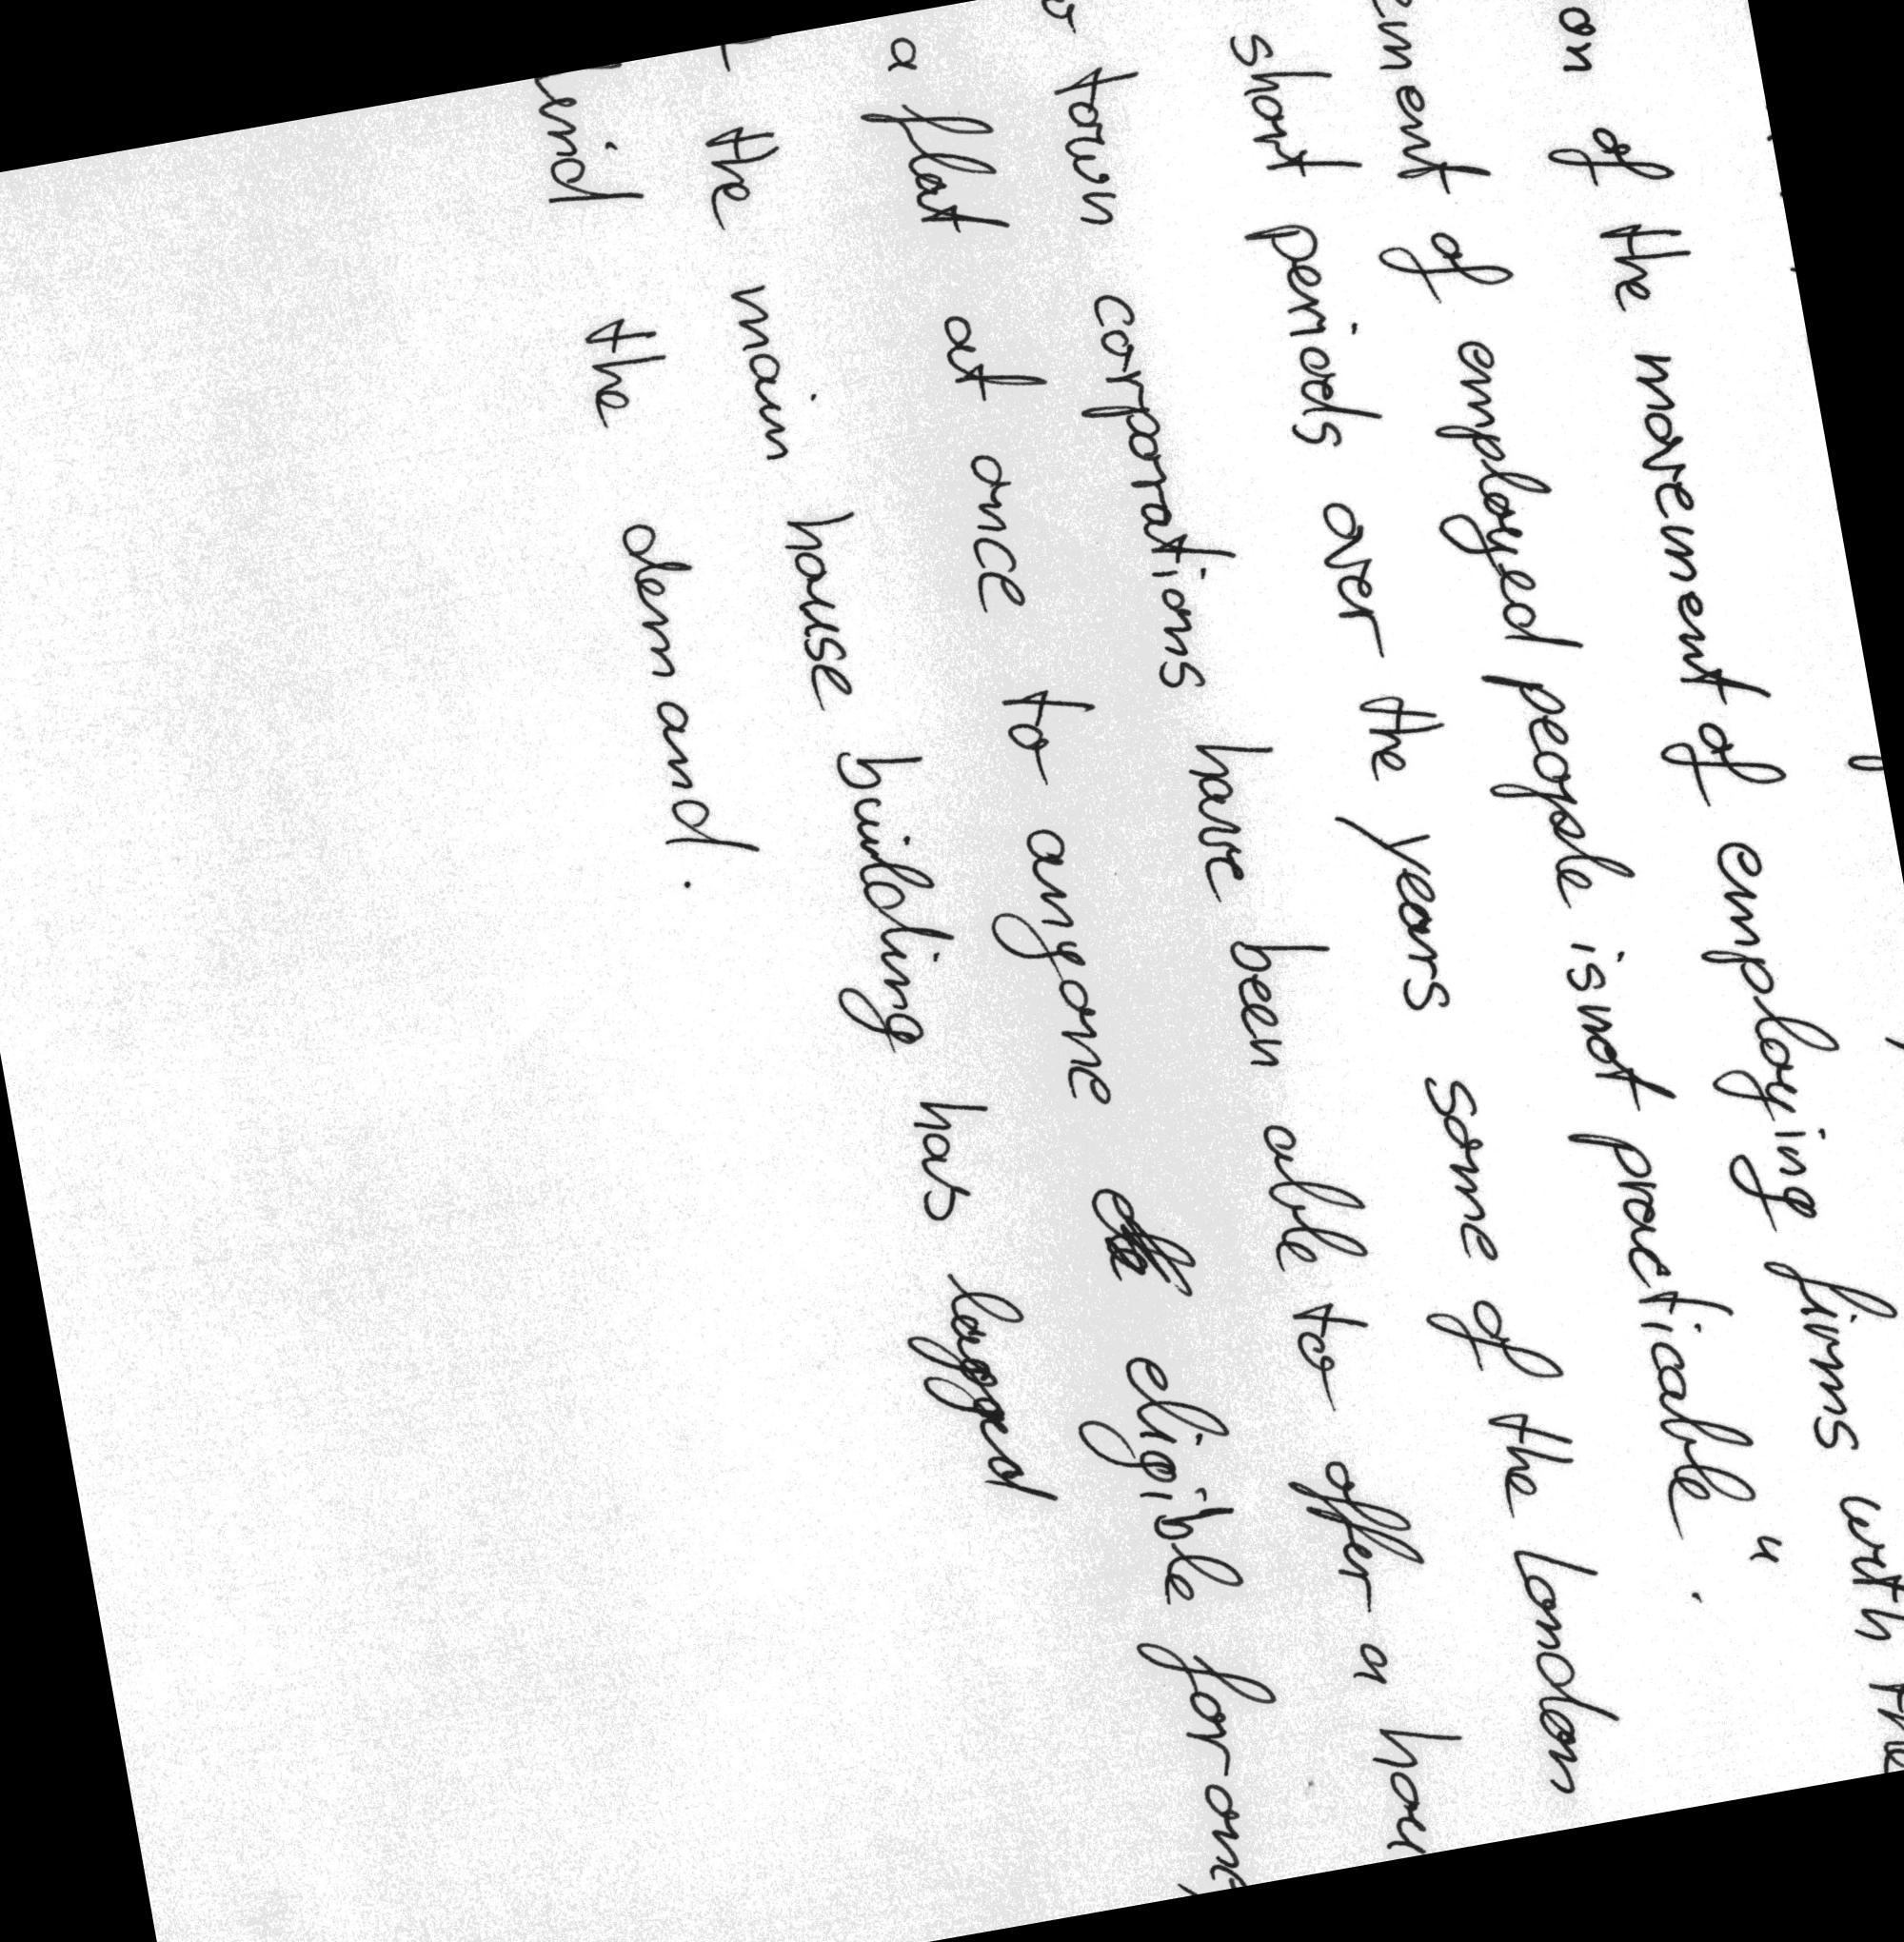 of the movement of employing firms with
of employed people is not practicable".
short periods over the years some of the London
town corporations have been able to offer a
a flat at once to anyone eligible for
the main house building has lagged
the demand.